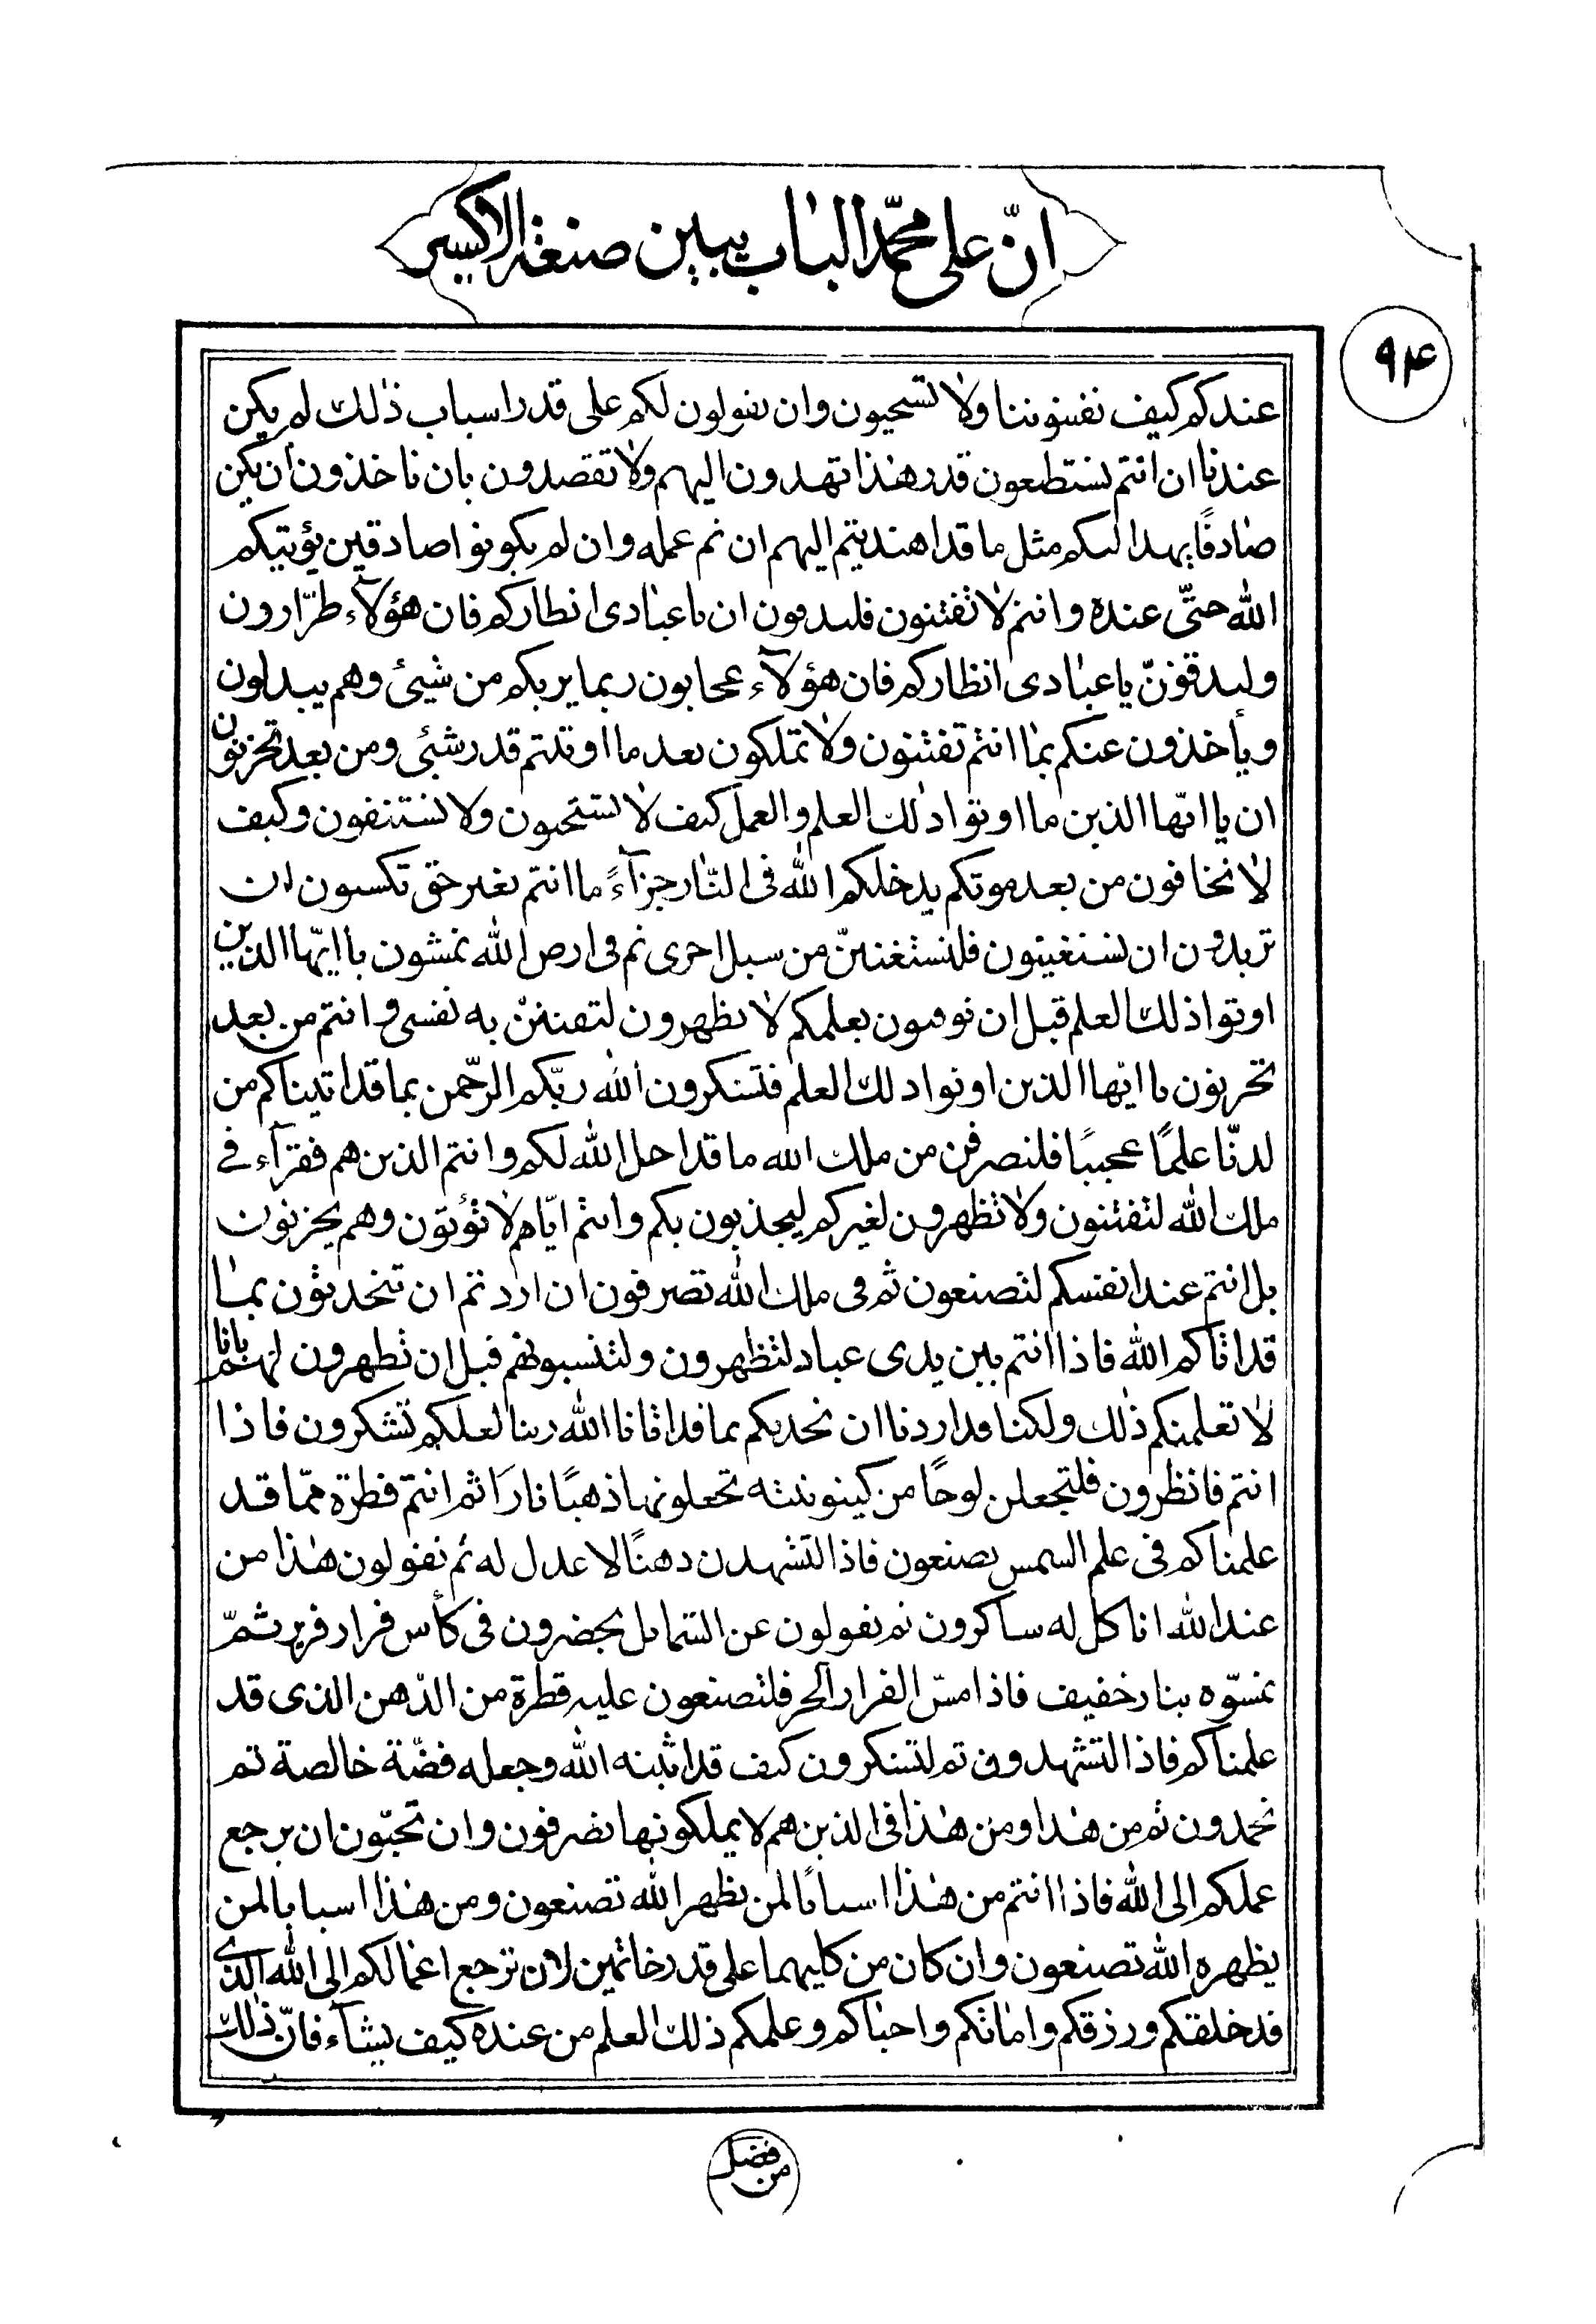 انّ علی محمّد الباب يبين صنعة الاکسير
٩۴
عندکم کيف تفتنوننا ولا تستحيون وان يقولون لکم علی قدر اسباب ذلك لم يکن
عندنا ان انتم تستطعون قدر هذا تهدون اليهم ولا تقصدون بان تاخذون ان يکن
صادقًا يهدا لکم مثل ما قد اهديتم اليهم ان تم عمله وان لم يکونوا صادقين يؤتيکم
الله حتّی عنده وانتم لا تفتنون ان يا عبادی انظارکم فان هؤلآء طرّارون
يا عبادی انظارکم فان هؤلآء عجابون ربما يريکم من شيئ وهم يبدلون
ويأخذون عنکم بما انتم تفتنون ولا تملکون بعد ما اوتيتم قدر شيئ ومن بعد تحزنون
ان يا ايّها الذين ما اوتوا ذلك العلم والعمل کيف لا تستحيون ولا تستنفون وکيف
لا تخافون من بعد موتکم يدخلکم الله فی النّار جزآءً ما انتم بغير حق تکسبون ان
تريدون ان تستغنيون فلتستغنينّ من سبل اخری ثم فی ارض الله تمشون يا ايّها الذين
اوتوا ذلك العلم قبل ان توصون بعلمکم لا تظهرون لتفتننّ به نفسی وانتم من بعد
تحزنون يا ايّها الذين اوتوا ذلك العلم فتشکرون الله ربّکم الرّحمن بما قد اتيناکم من
لدنّا علمًا عجيبًا فلتصرفن من ملك الله ما قد احل الله لکم وانتم الذين هم فقرآء فی
ملك الله لتفتنون ولا تظهرون لغيرکم ليجذبون بکم وانتم ايّاهم لا تؤتون وهم يحزنون
بل انتم عند انفسکم لتصنعون ثم فی ملك الله تصرفون ان اردتم ان تتحدثون بما
قد اتاکم الله فاذا انتم بين يدی عباد لتظهرون ولتنسبونهم قبل ان تظهرون لهم بانا
لا تعلمنکم ذلك ولکنا قد اردنا ان نحدثکم بما قد اتانا الله ربنا لعلکم تشکرون فاذا
انتم فانظرون فلتجعلن لوحًا من کينونيته تجعلونها ذهبًا نارًا ثم انتم قطرة ممّا قد
علمناکم فی علم الشمس تصنعون فاذا لتشهدن دهنًا لا عدل له ثم تقولون هذا من
عند الله انا کل له ساکرون ثم تقولون عن الشمايل يحضرون فی کأس فرار فرير ثمّ
تمسّوه بنار خفيف فاذا مسّ الفرار الحر فلتصنعون عليه قطرة من الدّهن الذی قد
علمناکم فاذا لتشهدون ثم لتشکرون کيف قد اثبته الله وجعله فضّة خالصة ثم
تحمدون ثم من هذا ومن هذا فی الذين هم لا يملکونها تصرفون وان تحبّون ان يرجع
عملکم الی الله فاذا انتم من هذا اسبابًا لمن يظهر الله تصنعون ومن هذا اسبابا لمن
يظهره الله تصنعون وان کان من کليهما علی قدر خاتمين لان ترجع اعمالکم الی الله الذی
قد خلقکم ورزقکم واماتکم واحياکم وعلمکم ذلك العلم من عنده کيف يشآء فانّ ذلك
من فضل